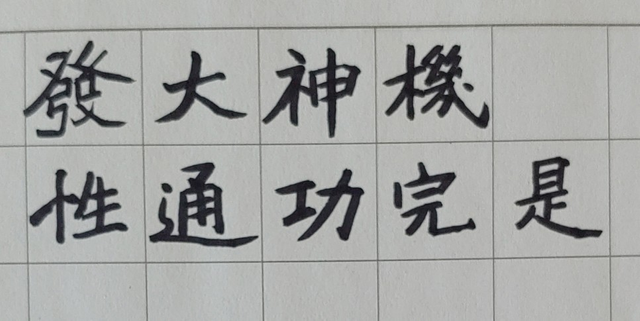 發大神機
性通功完是